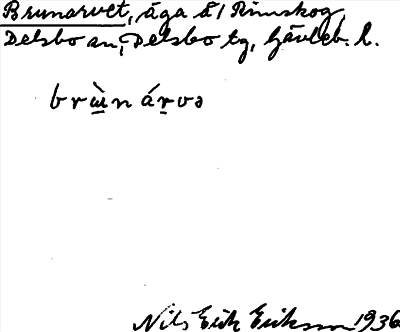 Brunarvet, äga å / Rimskog,
Delsbo sn, Delsbo tg, Gävleb. l.
brùnárvə
Nils Erik Eriksson 1936